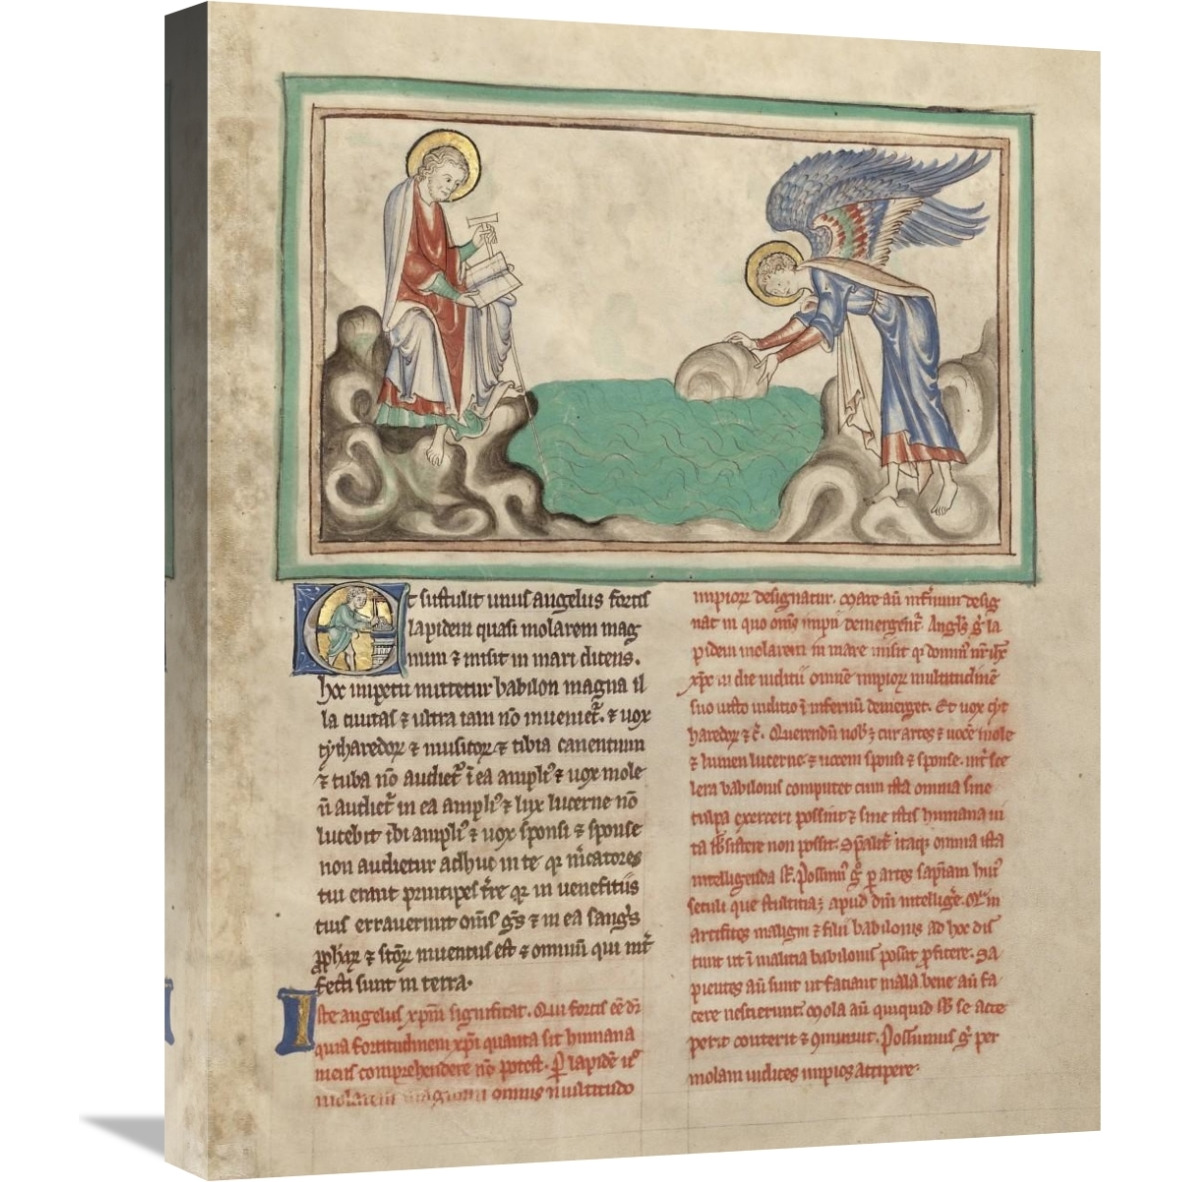 Et sustulit unus angelus fortis
lapidem quasi molarem mag
num ⁊ misit in mari dicens.
hoc impetu mittetur babilon magna il
la ciuitas ⁊ ultra iam nō inuenietᷣ. ⁊ uox
cytharedoꝝ ⁊ musicoꝝ ⁊ tibia canentium
⁊ tuba nō audietᷣ ī ea ampliꝰ ⁊ uox mole
n̄ audietᷣ in ea ampliꝰ ⁊ lux lucerne nō
lucebit ibi ampliꝰ ⁊ uox sponsi ⁊ sponse
non audietur adhuc in te qꝛ m̄catores
tui erant principes t̄re qꝛ in ueneficiis
tuis errauerunt om̄s gn̄s ⁊ in ea sangꝰs
ꝓphaꝝ ⁊ sc̄oꝝ inuentus est ⁊ omniū qui int̄
fecti sunt in terra.
Iste angelus xp̄m significat. Qui fortis
quia fortitudinem xp̄i quanta sit humana
mens comprehendere nō potest. ꝑ lapidē
molarem magnum omnis multitudo
impioꝝ designatur. Mare aū infernum desig
nat in quo om̄s impii demergentᷣ. Angl̄s g̊ la
pidem molarem in mare misit
xp̄c in die iudicii omnē impioꝝ multitudinē
suo iusto iudicio ī infernū demerget. Et uox cyt
haredoꝝ ⁊ c̄. Querendū nob̄ ⁊ cur artes ⁊ uocē mole
⁊ lumen lucerne ⁊ uocem sponsi ⁊ sponse. int̄ sce
lera babilonis computet cum ista omnia sine
culpa exerceri possint ⁊ sine istis humana ui
ta subsistere non possit. Sp̄alit̄ itaqꝫ omnia ista
intelligenda s̄t. Possumꝰ g̊ ꝑ artes sapiam huiꝰ
seculi que stultitia ; apud dm̄ intelligere.
artifices maligni ⁊ fabri babilonis ad hoc dis
cunt ut ī malitia babilonis possit ꝓficere. Sa
pientes aū sunt ut faciant mala bene aū fa
cere nescierunt. Mola aū quicquid se acce
perit conterit ⁊ cōminuit. Possumus g̊ per
molam iudices impios accipere.